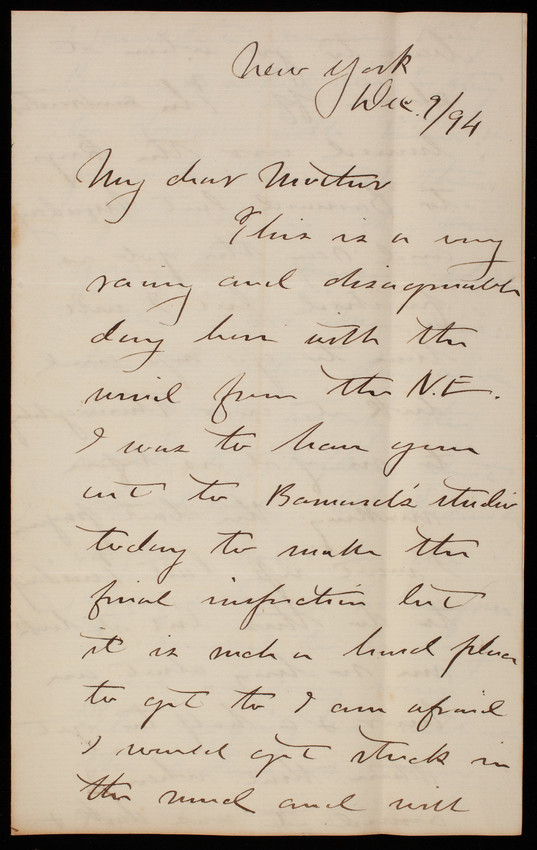 New York
Dec. 9/94
My dear Mother
This is a very
rainy and disagreeable
day here with the
wind from the N.E.
I was to have gone
out to Barnard's studio
today to make the
final inspection but
it is such a hard place
to get to I am afraid
I would get stuck in
the mud and will